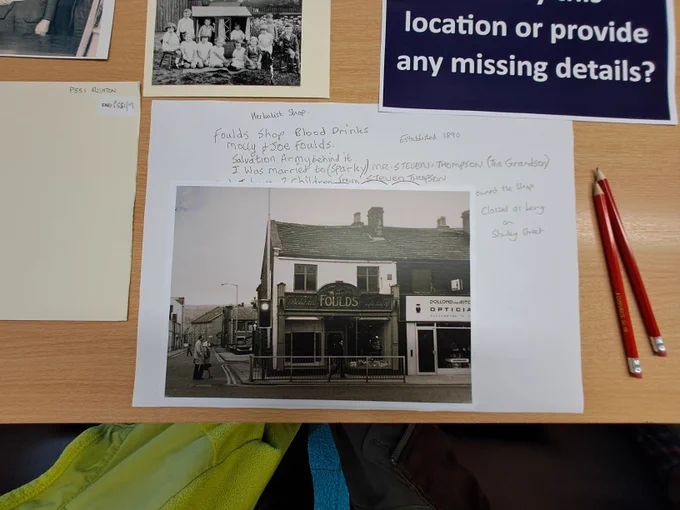 this
location or provide
any missing details?
Herbalist Shop.
Foulds Shop Blood Drinks
Established 1890
Molly & Joe Foulds.
Salvation Army behind it
I was married to (Sparky) MR. STEVEN THOMPSON (The Grandson)
2 Children STEVEN THOMPSON
owned the shop
Closed as being
on
Stanley Street
FOULDS
OPTICIA